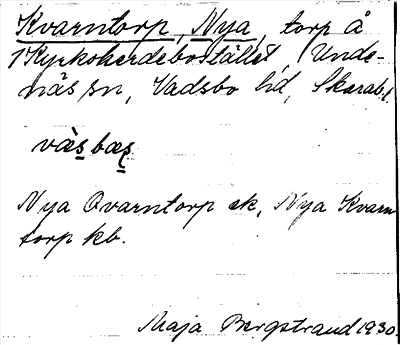 Kvarntorp, Nya, torp å
1 Kyrkoherdebostället, Unde-
näs sn, Vadsbo hd, Skarab.
vàsbæ
Nya Qvarntorp ek, Nya Kvarn
torp kb.
Maja Bergstrand 1930.